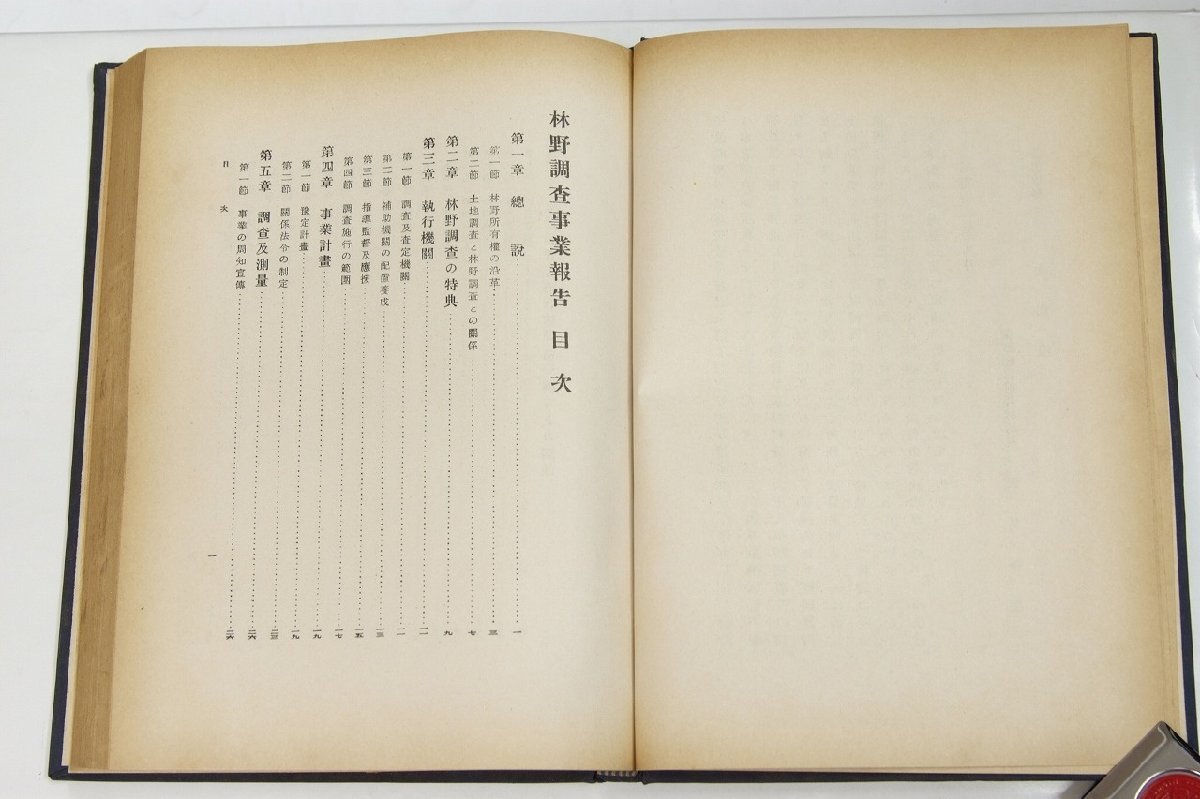 林野調查事業報告 目次
第一章 總說……一
第一節 林野所有權の沿革……三
第二節 土地調查と林野調查との關係……七
第二章 林野調查の特典……九
第三章 執行機關……一一
第一節 調查及查定機關……一一
第二節 補助機關の配置養成……一三
第三節 指導監督及應援……一五
第四節 調查施行の範圍……一七
第四章 事業計畫……一九
第一節 豫定計畫……一九
第二節 關係法令の制定……二三
第五章 調查及測量……二六
第一節 事業の周知宣傳……二六
目次 一